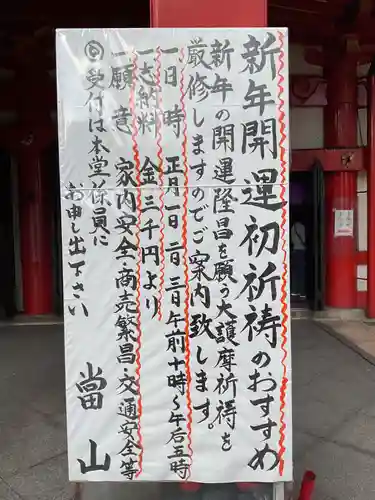 新年開運初祈祷のおすすめ
新年の開運隆昌を願う大護摩祈祷を
厳修しますのでご案内致します。
一日時 正月一日二日三日午前十時〜午后五時
一志納料 金三千円より
一願意 家内安全・商売繁昌・交通安全等
◎受付は本堂係員に
お申し出下さい
當山